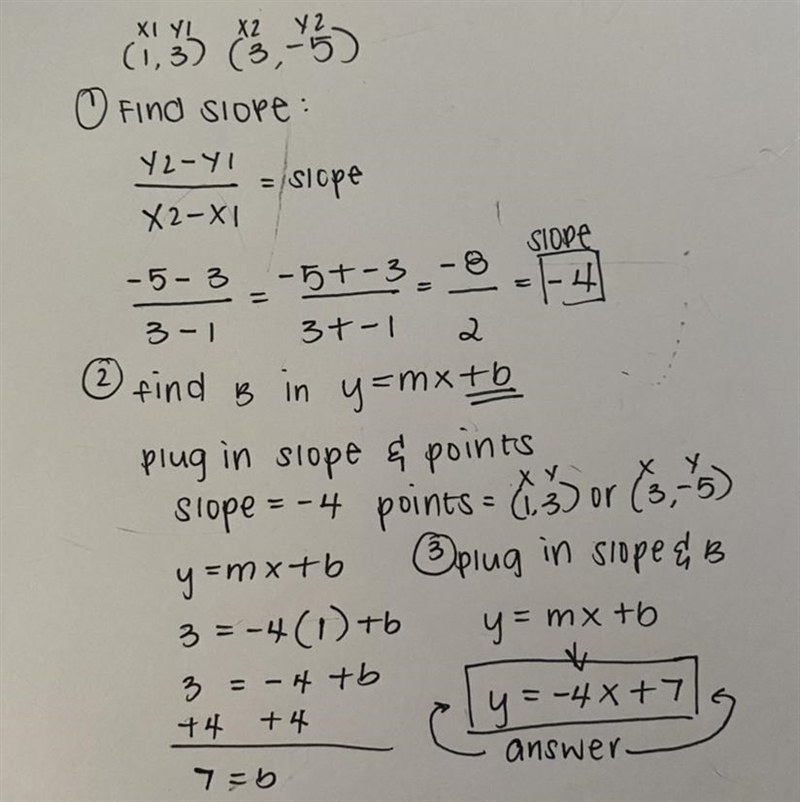 X1 Y1 X2 Y2
(1,3) (3,-5)
① Find slope:
Y2-Y1 / X2-X1 = slope
slope
-5-3 / 3-1 = -5+-3 / 3+-1 = -8 / 2 = -4
② find B in y=mx+b
plug in slope & points
X Y X Y
slope = -4 points = (1,3) or (3,-5)
y=mx+b
3 = -4(1)+b
3 = -4+b
+4 +4
7=b
③ plug in slope & B
y= mx+b
y = -4x+7
answer